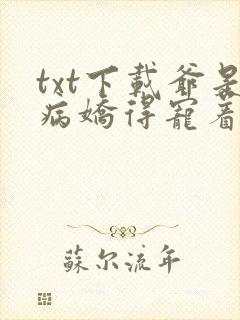 txt下載爺是
病嬌得寵着
蘇尔流年